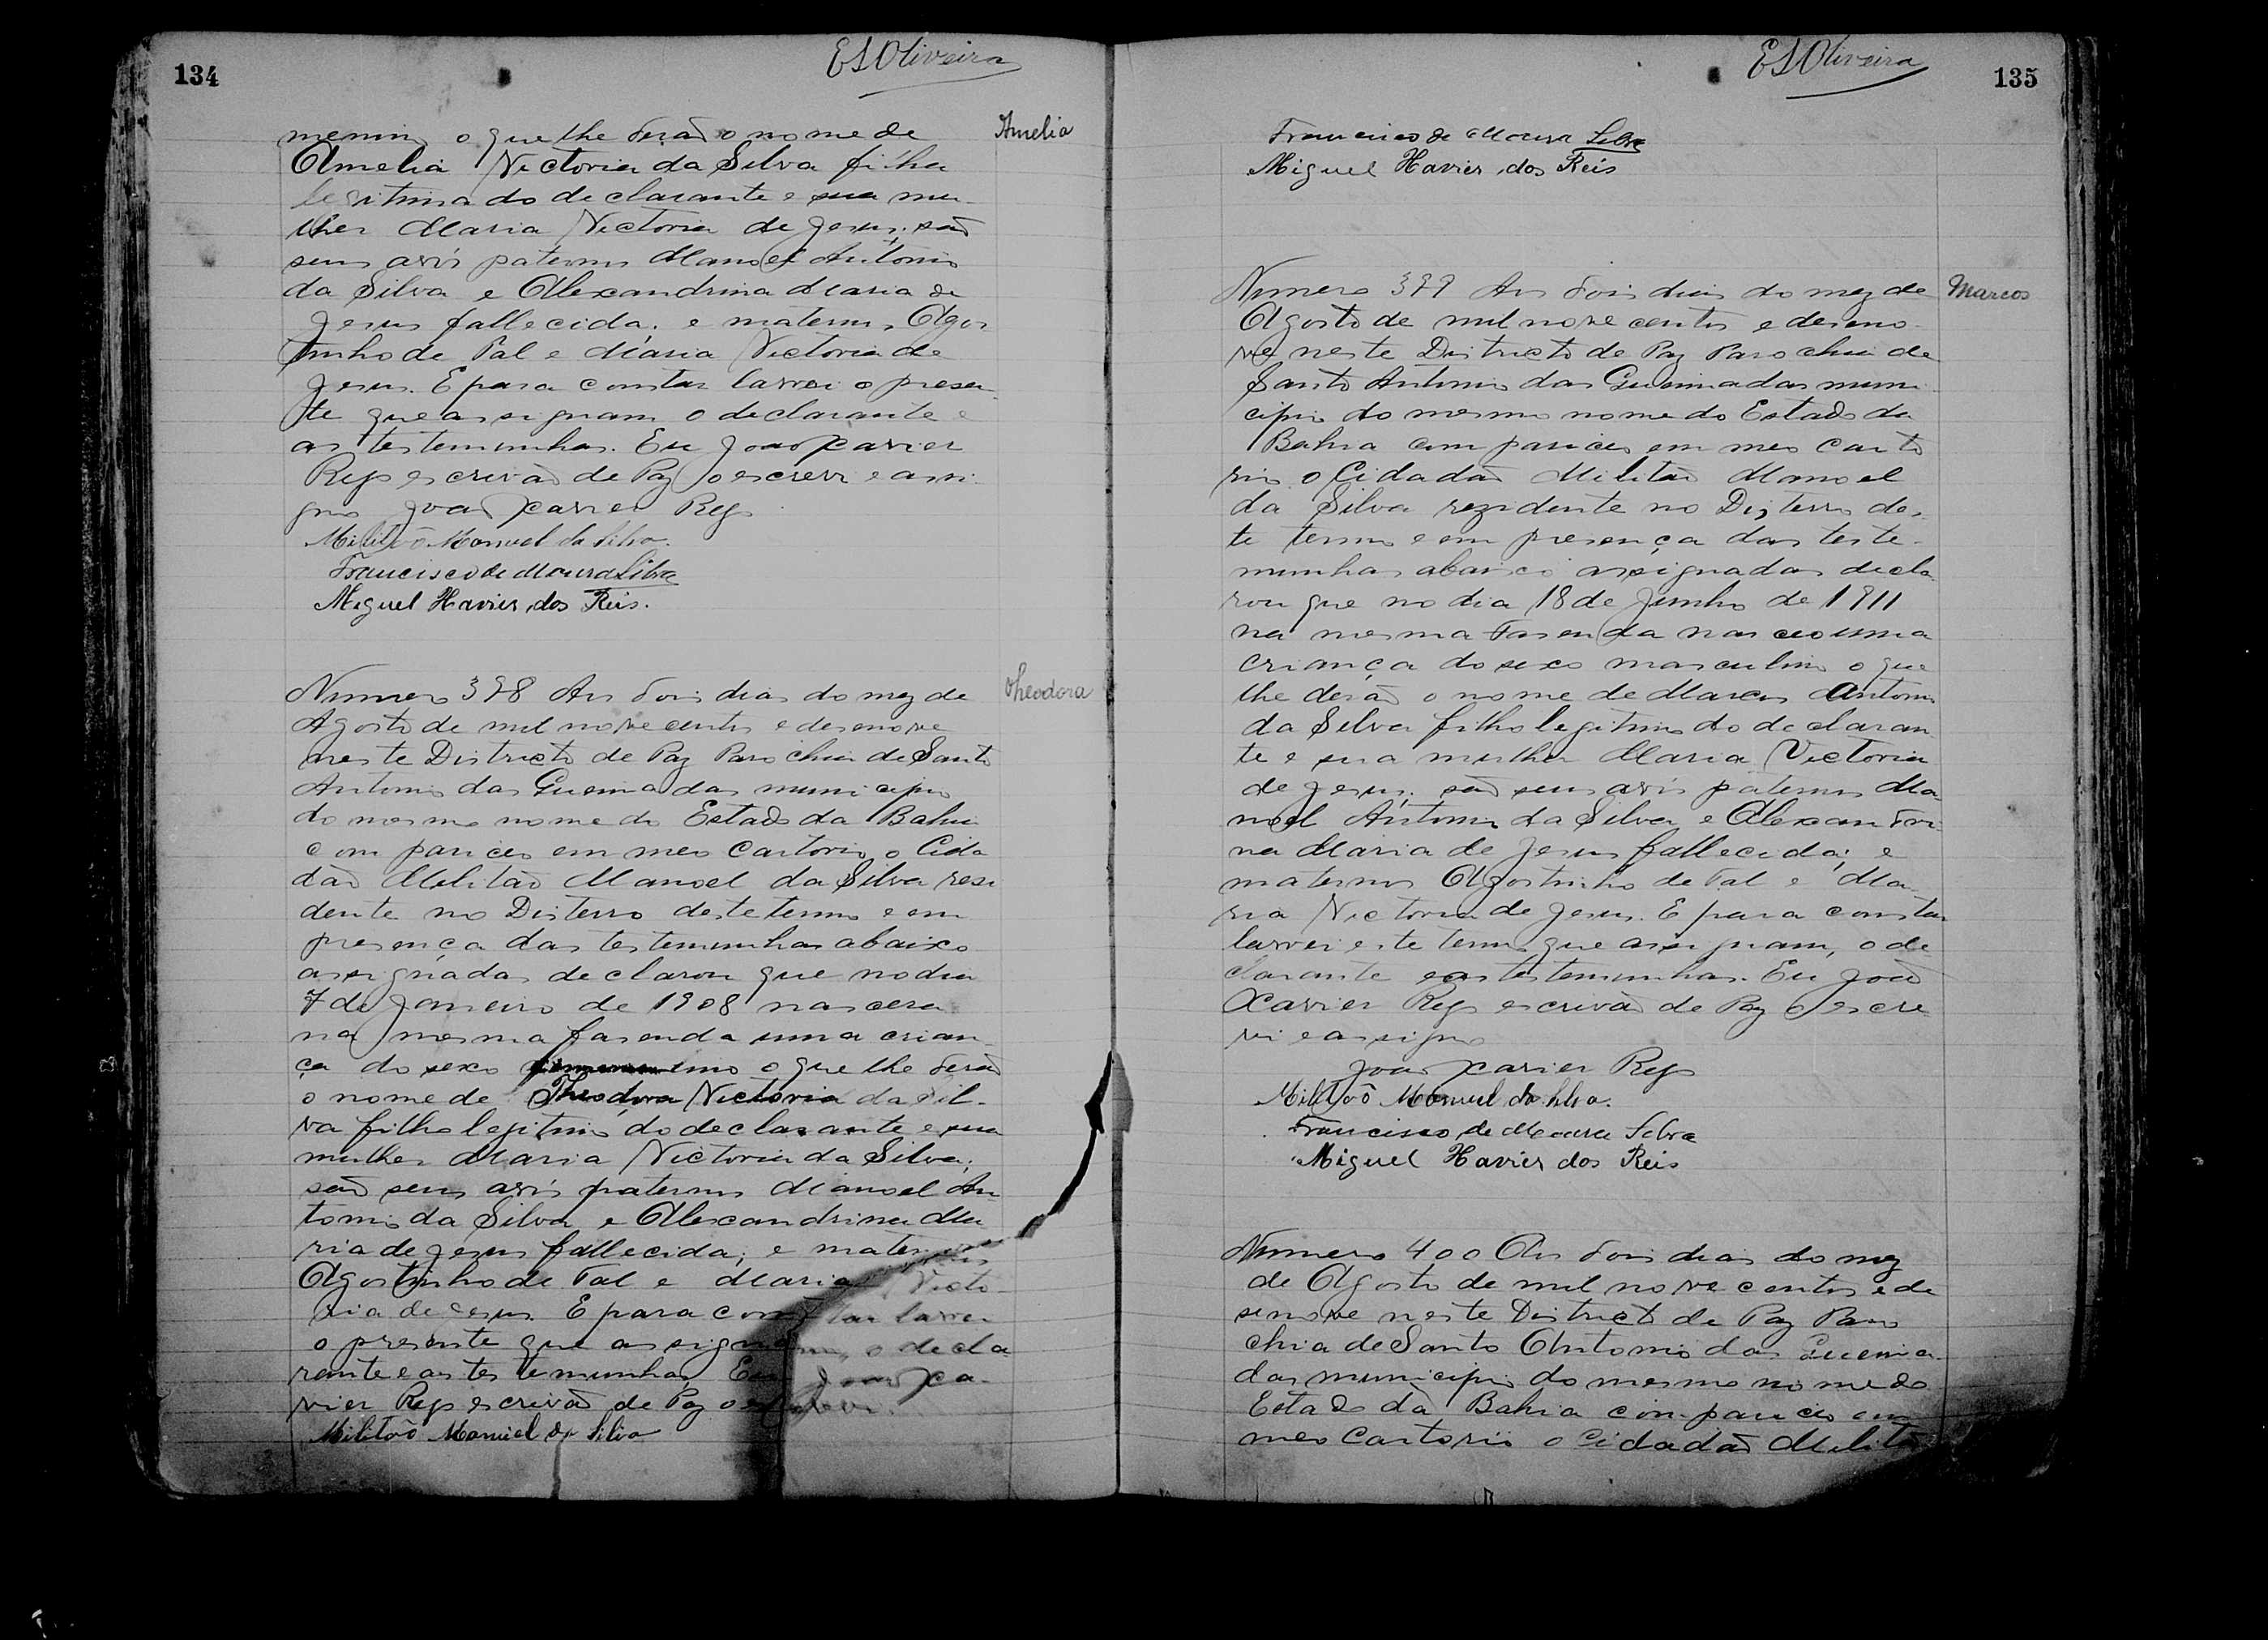 134
ESOliveira
menino o que lhe derão o nome de
Amelia
Amelia Victoria da Silva filha
legitima do declarante e sua mu-
lher Maria Victoria de Jesus; são
seus avós paternos Manoel Antonio
da Silva e Alexandrina Maria de
Jesus fallecida; e maternos Agos
tinho de Tal e Maria Victoria de
Jesus. E para constar lavrei o presen-
te que assignam o declarante e
as testemunhas. Eu João Xavier
Reys escrivão de Paz o escrevi e assi-
gno João Xavier Reys
Militaõ Manuel da Silva.
Francisco de Moura Silva
Miguel Havier dos Reis.
Numero 398 Aos dois dias do mez de
Theodora
Agosto de mil nove centos e desenove
neste Districto de Paz Parochia de Santo
Antonio das Queimadas municipio
do mesmo nome do Estado da Bahia
compareceo em meo Cartorio o Cida
dão Militão Manoel da Silva resi
dente no Disterro deste termo e em
presença das testemunhas abaixo
assignadas declarou que no dia
7 de Janeiro de 1908 nascera
na mesma fasenda uma crian-
ça do sexo o que lhe derão
o nome de Theodora Victoria da Sil-
va filho legitimo do declarante e sua
mulher Maria Victoria da Silva;
são seus avós paternos Manoel An
tonio da Silva e Alexandrina Ma
ria de Jesus fallecida; e maternos
Agostinho de Tal e Maria Victo-
ria de Jesus. E para constar lavrei
o presente que assignam, o decla
rante e as testemunhas Eu João Xa-
vier Reys escrivão de Paz o escrevi.
Militaõ Manuel da Silva
135
ESOliveira
Francisco de Moura Silva
Miguel Havier dos Reis
Numero 399 Aos dois dias do mez de
Marcos
Agosto de mil nove centos e deseno-
ve neste Districto de Paz Parochia de
Santo Antonio das Queimadas muni
cipio do mesmo nome do Estado da
Bahia compareceo em meo Carto
rio o Cidadão Militão Manoel
da Silva rezidente no Disterro des-
te termo e em presença das teste-
munhas abaixo assignadas decla
rou que no dia 18 de Junho de 1911
na mesma Fasenda nasceo uma
criança do sexo masculino o que
lhe derão o nome de Marcos Antonio
da Silva filho legitimo do declaran-
te e sua mulher Maria Victoria
de Jesus; são seus avós paternos Ma-
noel Antonio da Silva e Alexandri-
na Maria de Jesus fallecida; e
maternos Agostinho de Tal e Ma-
ria Victoria de Jesus. E para constar
lavrei este termo que assignam, o de
clarante e as testemunhas. Eu João
Xavier Reys escrivão de Paz o escre-
vi e assigno
João Xavier Reys
Militaõ Manuel da Silva.
Francisco de Moura Silva
Miguel Havier dos Reis
Numero 400 Aos dois dias do mez
de Agosto de mil nove centos e de
senove neste Districto de Paz Paro
chia de Santo Antonio das Queima-
das municipio do mesmo nome do
Estado da Bahia compareceo em
meo Cartorio o Cidadão Militão